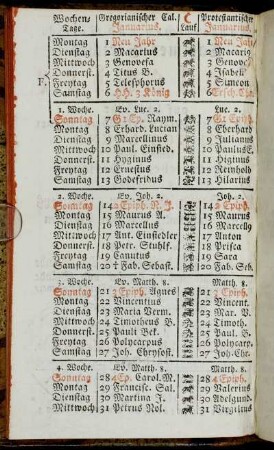 Wochen- Gregorianischer Cal. C Protestantischer
Tage. Januarius. Lauf Januarius.
Montag 1 Neu Jahr 1 Neu Jahr
Dienstag 2 Macarius 2
Mittwoch 3 Genovefa 3 Genov.
Donnerst. 4 Titus B. 4 Isabell
F. Freytag 5 Telesphorus 5 Simeon
Samstag 6 HH. 3 König 6
1. Woche. Ev. Luc. 2. Luc. 2.
Sonntag 7 G 1 Ep. Raym. 7 G 1 Epiph.
Montag 8 Erhard. Lucian 8 Eberhard
Dienstag 9 Marcellinus 9 Julianus
Mittwoch 10 Paul. Einsied. 10 Paulus E.
Donnerst. 11 Hyginus 11 Higinus
Freytag 12 Ernestus 12 Reinhold
Samstag 13 Godefridus 13 Hilarius
2. Woche. Ev. Joh. 2. Joh. 2.
Sonntag 14 2 Epiph. N. J. 14 2 Epiph.
Montag 15 Maurus A. 15 Maurus
Dienstag 16 Marcellus 16 Marcell9
Mittwoch 17 Ant. Einsiedler 17 Anton
Donnerst. 18 Petr. Stuhlf. 18 Prisca
Freytag 19 Canutus 19 Sara
Samstag 20 † Fab. Sebast. 20 Fab. Seb.
3. Woche. Ev. Matth. 8. Matth. 8.
Sonntag 21 3 Epiph. Agnes 21 3 Epiph.
Montag 22 Vincentius 22 Vincent.
Dienstag 23 Maria Verm. 23 Mar. V.
Mittwoch 24 Timotheus B. 24 Timoth.
Donnerst. 25 Pauli Bek. 25 Paul. B.
Freytag 26 Polycarpus 26 Polycarp.
Samstag 27 Joh. Chrysost. 27 Joh. Chr.
4. Woche. Ev. Matth. 8. Matth. 8.
Sonntag 28 4 Ep. Carol. M. 28 4 Epiph.
Montag 29 Francisc. Sal. 29 Valerius
Dienstag 30 Martina J. 30 Adelgund
Mittwoch 31 Petrus Nol. 31 Virgilius